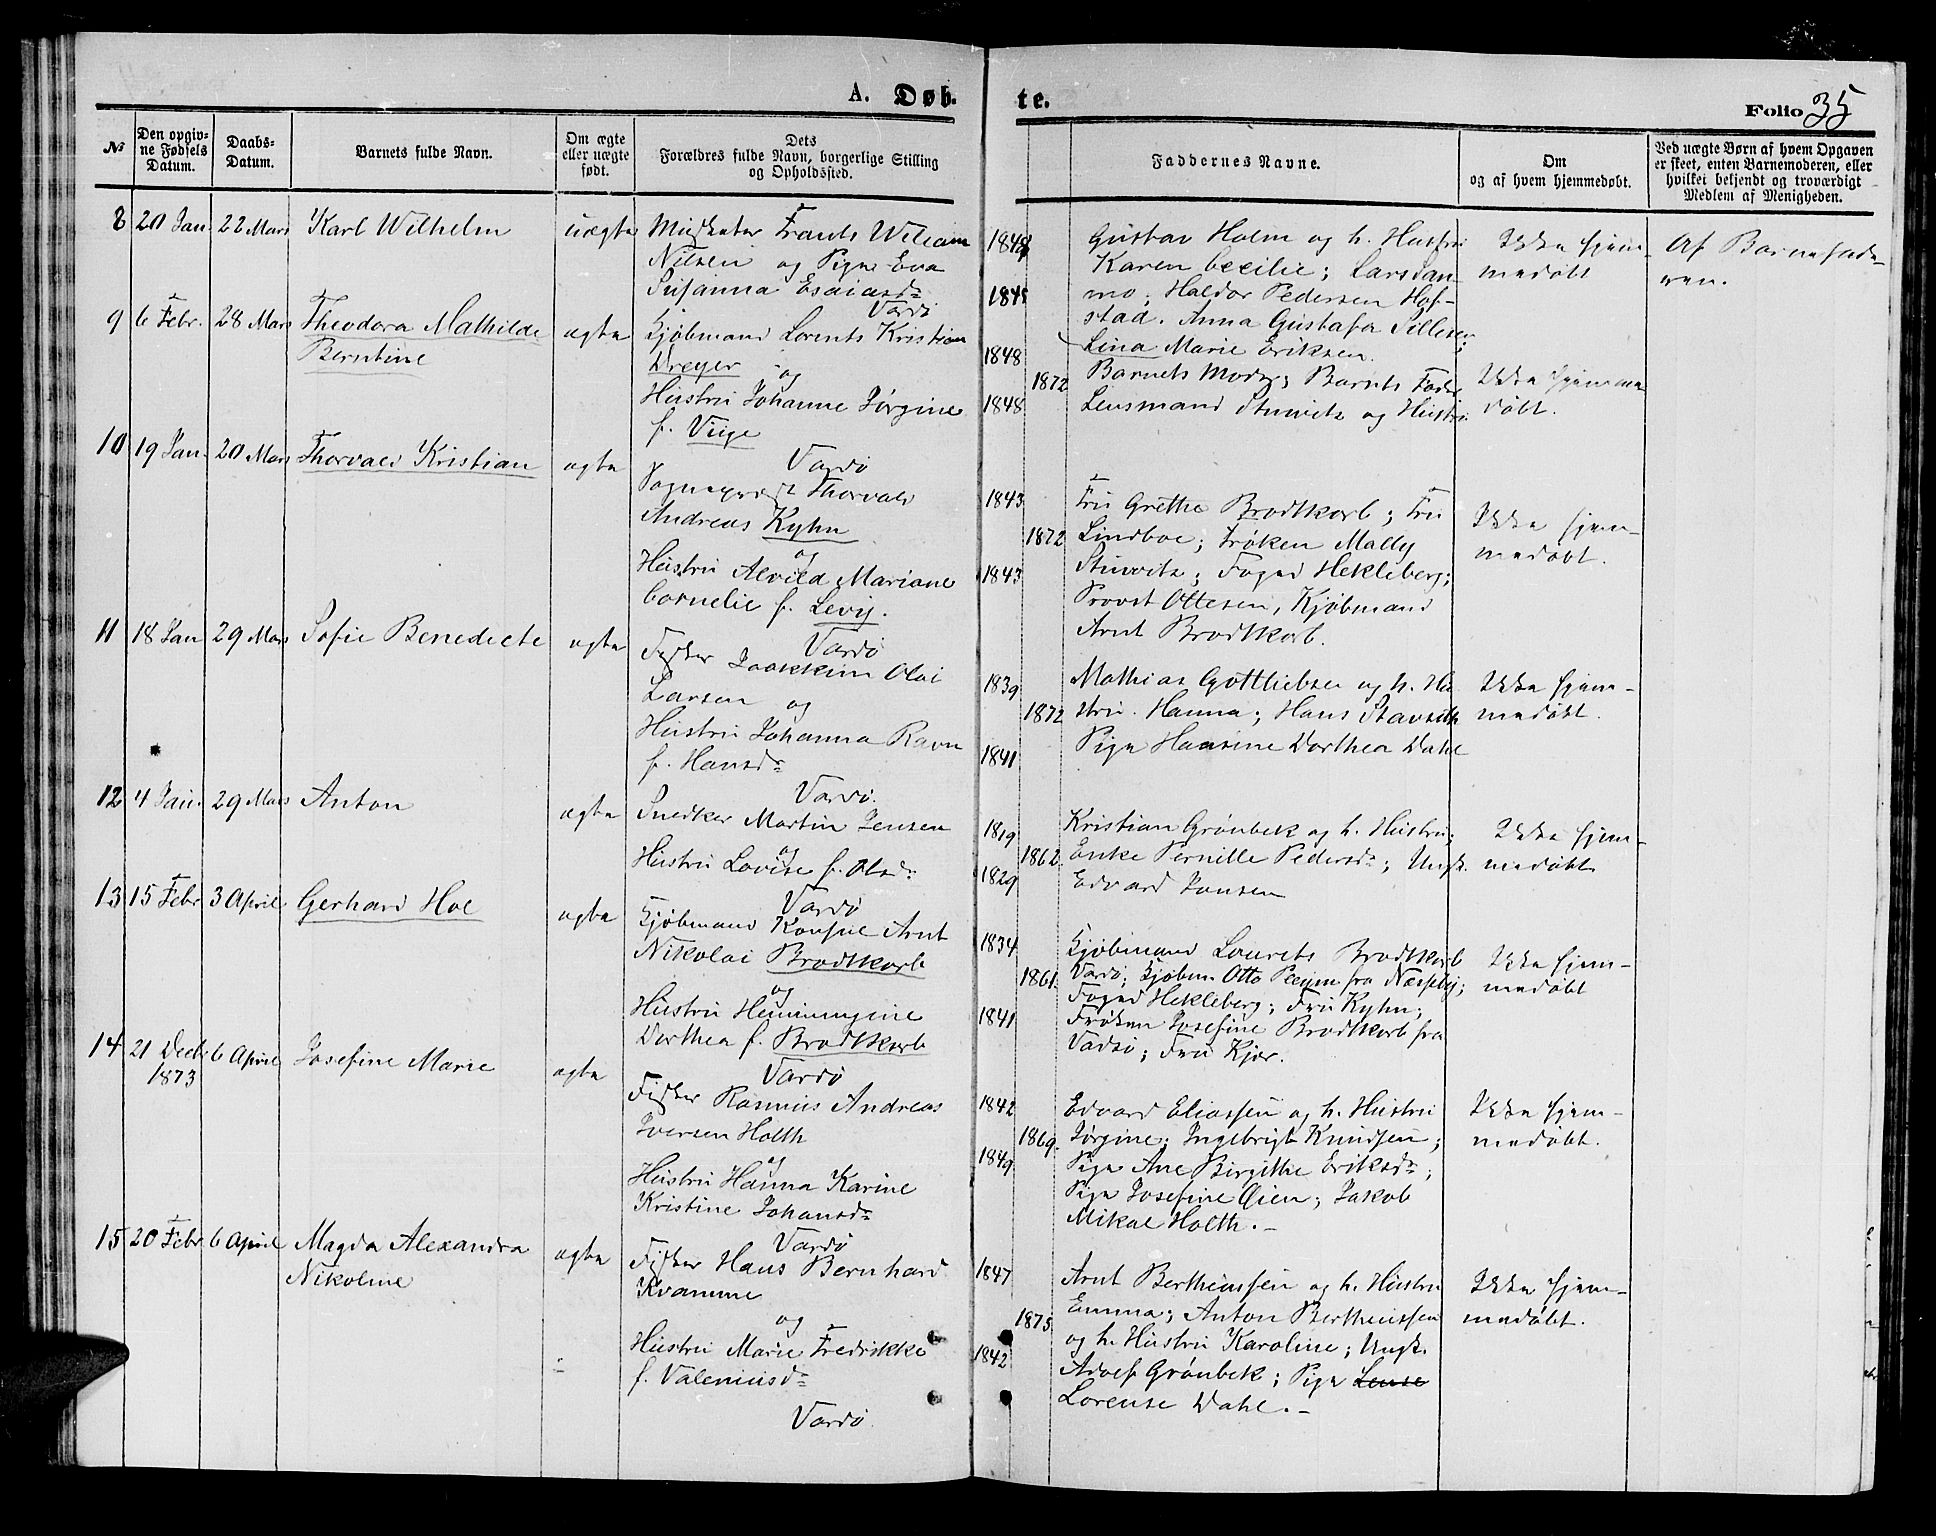 A. Døb.
te.
Folio 35
No
Den opgiv-
ne Fødsels
Datum.
Daabs-
Datum.
Barnets fulde Navn.
Om ægte
eller uægte
født.
Dets
Forældres fulde Navn, borgerlige Stilling
og Opholdssted.
Faddernes Navne.
Om
og af hvem hjemmedøbt.
Ved uægte Børn af hvem Opgaven
er skeet, enten Barnemoderen, eller
hvilket bekjendt og troværdigt
Medlem af Menigheden.
8 20 Jan. 22 Mars Karl Wilhelm uægte
Frants Wiliam
Nilsen og Pige Eva
Susanna Esaiasdr
Vardö
1848
1845
Gustav Holm og h. Hustru
Karen Cecilie; Lars
Haldor Pedersen Hof-
stad. Anna Gustafa
Lina Marie Eriksen.
Ikke hjem-
medöbt
Af Barnefade-
ren.
9 6 Febr. 28 Mars Theodora Mathilde
Berntine
ægte
Kjöbmand Lorents Kristian
Dreyer og
Hustru Johanne Jörgine
f. Viige
Vardö
1848
1872
1848
Barnets Moder; Barnets Fader
Lensmand Stuwitz og Hustru
Ikke hjemme
döbt.
10 19 Jan. 20 Mars Thorvald Kristian ægte
Sognepræst Thorvald
Andreas Kyhn
og
Hustru Alvild Mariane
Cornelie f. Levy.
Vardö
1843
1872
1843
Fru Grethe Brodtkorb; Fru
Lindboe; Fröken Mally
Stuwitz; Foged Hekleberg;
Provst Ottesen, Kjöbmand
Arnt Brodtkorb.
Ikke hjem-
medöbt.
11 18 Jan 29 Mars Sofie Benedicte ægte
Fisker Joakkim Olai
Larsen og
Hustru Johanna Ravn
f. Hansdr
Vardö.
1839
1872
1841
Mathias Gottliebsen og h. Hu-
stru Hanna; Hans
Pige Hansine Dorthea Dahl
Ikke hjem-
medöbt.
12 4 Jan. 29 Mars Anton ægte
Snedker Martin Jensen
og
Hustru Lovise f. Olsdr
Vardö
1819
1862
1829
Kristian Grönbek og h. Hustru;
Enke Pernille Pedersdr; Ungk.
Edvard Jensen
Ikke hjem-
medöbt
13 15 Febr 3 April Gerhard Hoe ægte
Kjöbmand Konsul Arnt
Nikolai Brodtkorb
og
Hustru Hemmingine
Dorthea f. Brodtkorb
Vardö
1834
1861
1841
Kjöbmand Laurets Brodtkorb
Vardö; Kjöbm. Otto fra Næsseby;
Foged Hekleberg; Fru Kyhn;
Fröken Josefine Brodtkorb fra
Vadsö; Fru Kjær.
Ikke hjem-
medöbt
14 21 Decb 6 April Josefine Marie ægte
1873
Fisker Rasmus Andreas
Iversen Holth
og
Hustru Hanna Karine
Kristine Johansdr
Vardö
1842
1869
1849
Edvard Eliassen og h. Hustru
Jörgine; Ingebrigt Knudsen;
Pige Ane Birgitthe Eriksdr;
Pige Josefine Öien; Jakob
Mikal Holth.-
Ikke hjem-
medöbt.
15 20 Febr 6 April Magda Alexandra
Nikoline
ægte
Fisker Hans Bernhard
Kvamme
og
Hustru Marie Fredrikke
f. Valeniusdr
Vardö.
1847
1875
1842
Arnt Bertheussen og h. Hustru
Emma; Anton Bertheussen
og h. Hustru Karoline; Ungk.
Adolf Grönbek; Pige Lense
Lorense Dahl.-
Ikke hjem-
medöbt.